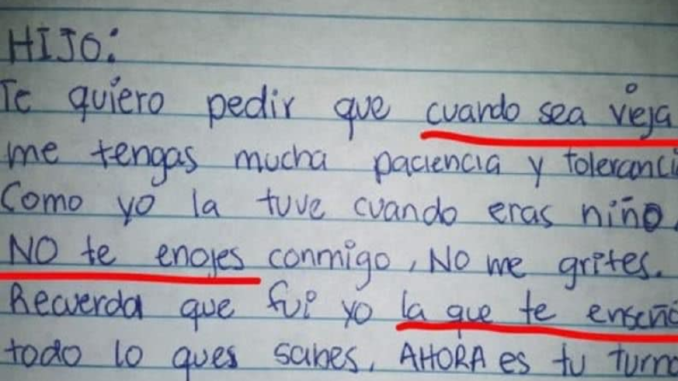 HIJO:
Te quiero pedir que cuando sea vieja
me tengas mucha paciencia y toleranci
Como yo la tuve cuando eras niño.
NO te enojes conmigo, NO me grites.
Recuerda que fui yo la que te enseñó
todo lo ques sabes. AHORA es tu turno